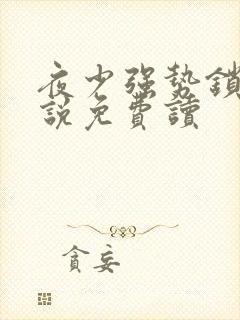 夜少強勢鎖
說免費讀
貪妄